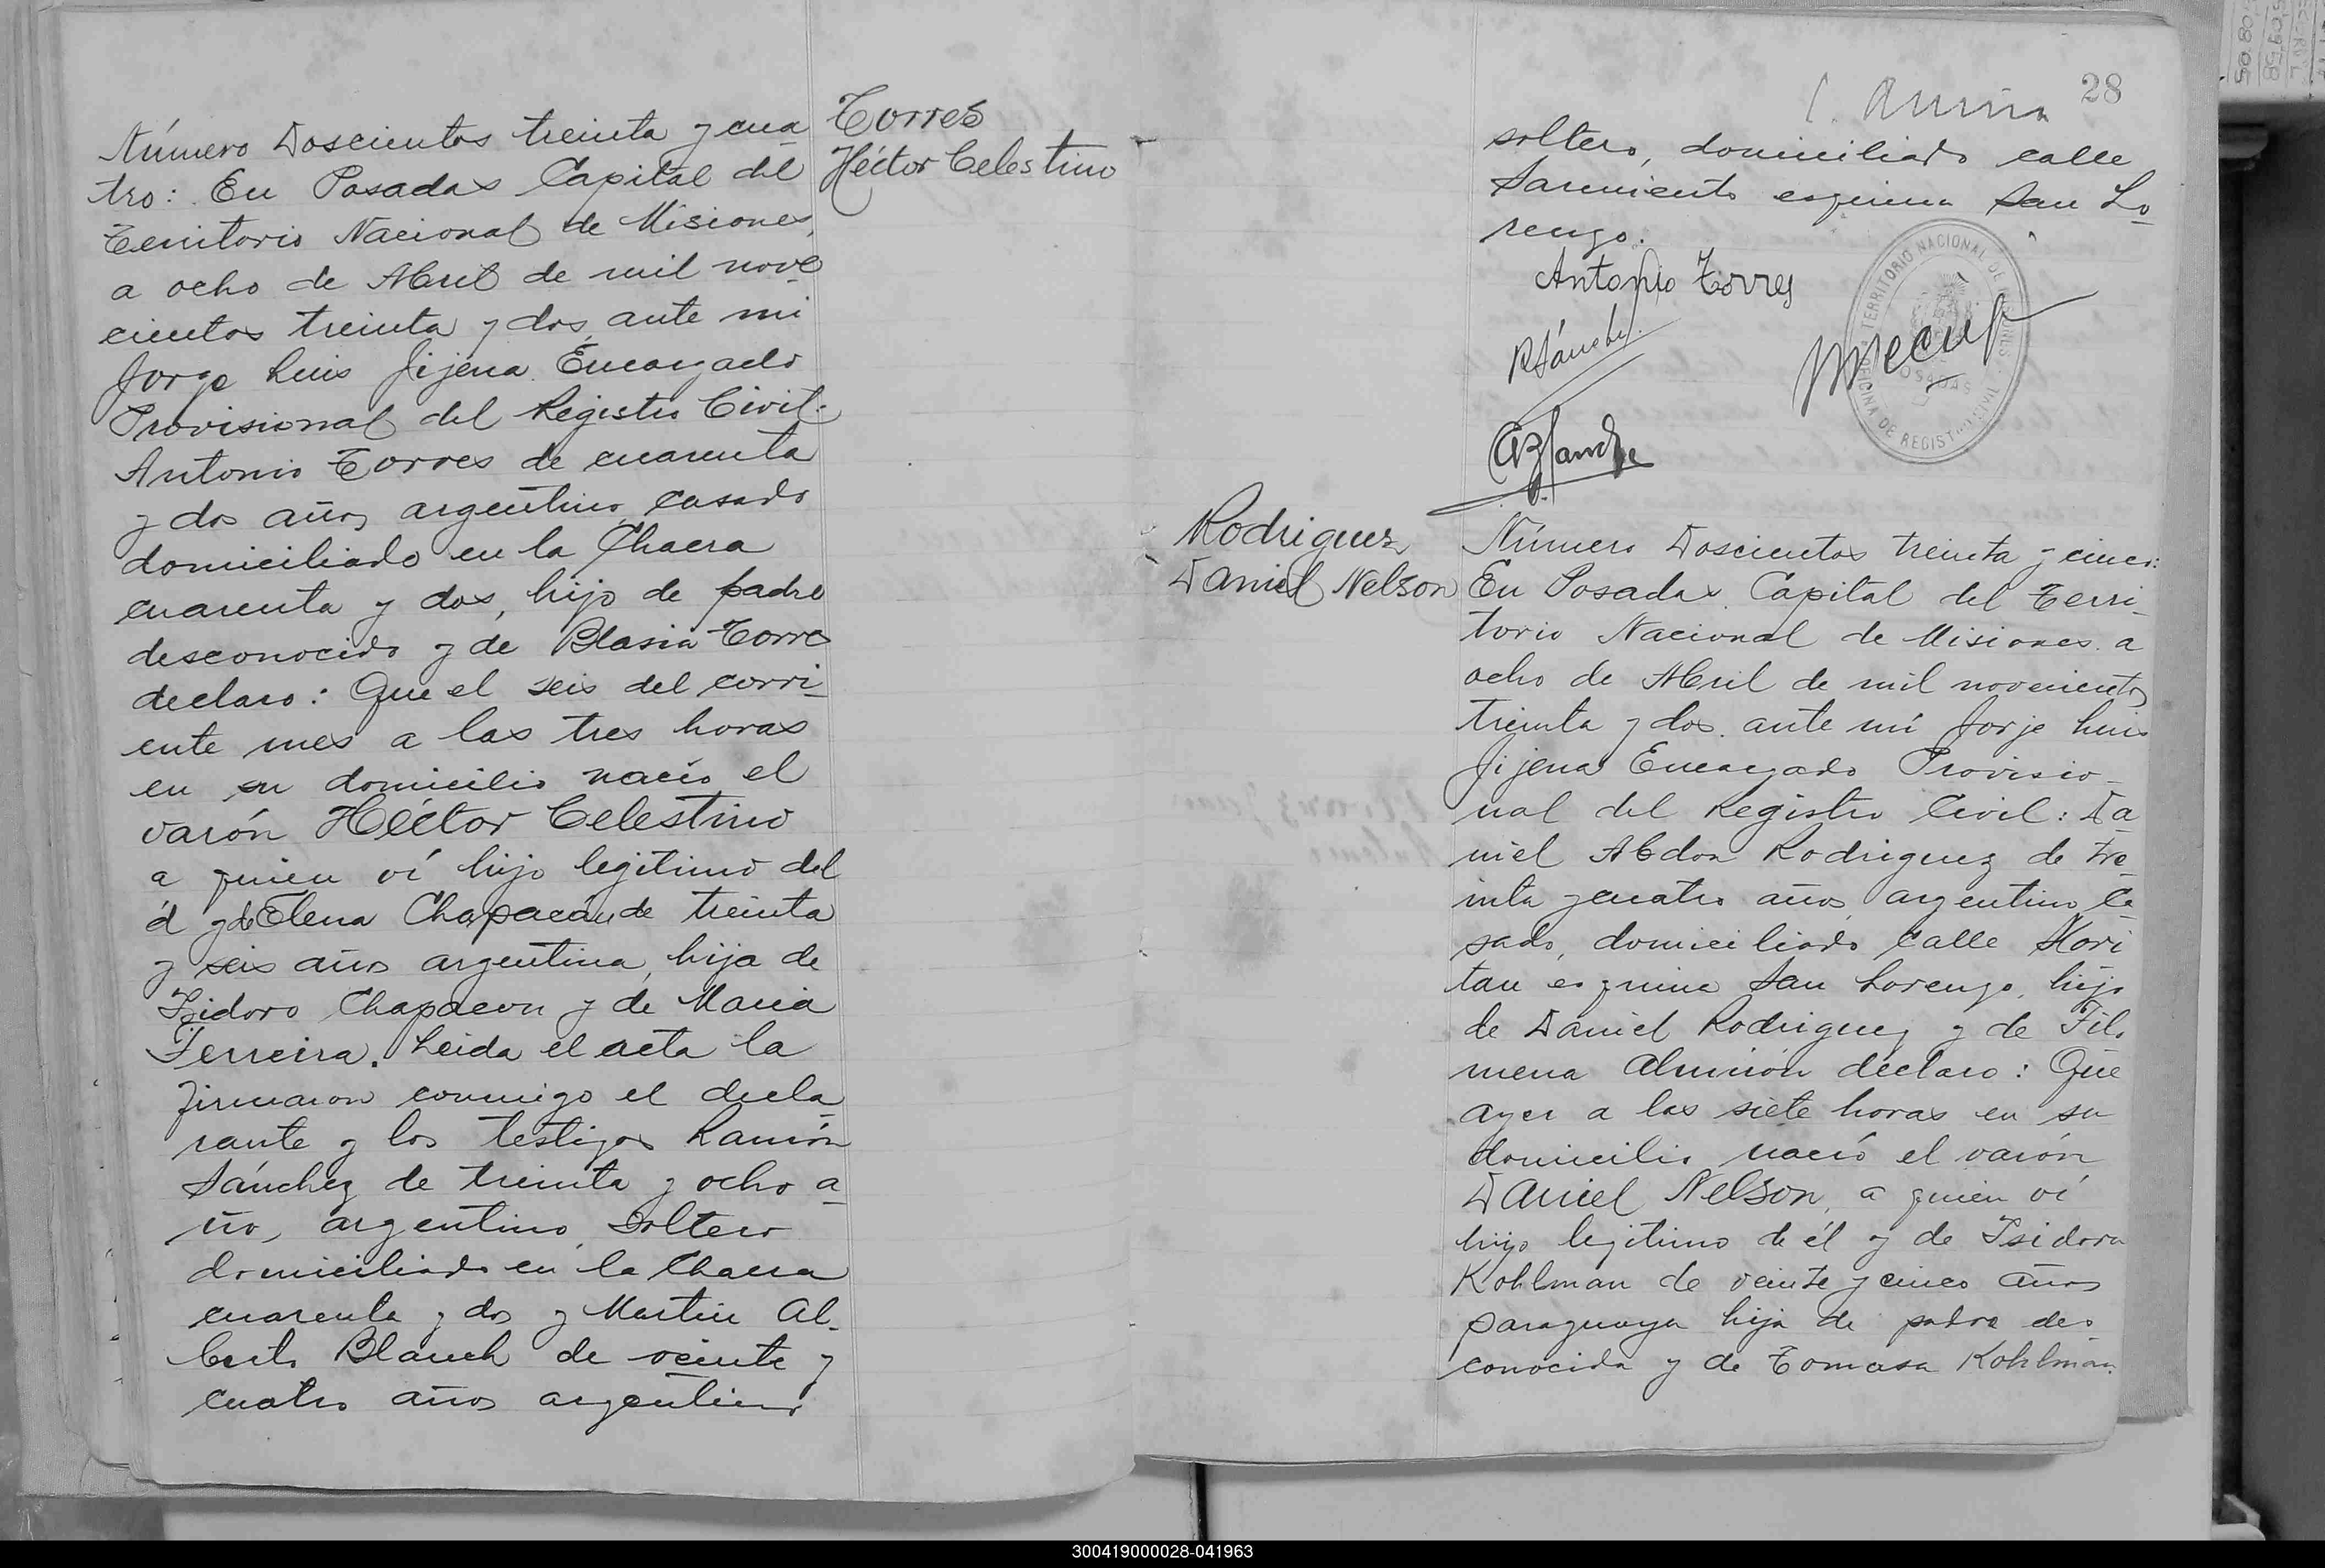 Torres
Héctor Celestino
Número Doscientos treinta y cua
tro: En Posadas Capital del
Territorio Nacional de Misiones,
a ocho de Abril de mil nove
cientos treinta y dos, ante mi
Jorge Luis Jijena Encargado
Provisional del Registro Civil:
Antonio Torres de cuarenta
y dos años argentino, casado
domiciliado en la Chacra
cuarenta y dos, hijo de padre
desconocido y de Blasia Torres
declaro: Que el seis del corri-
ente mes a las tres horas
en su domicilio nació el
varón Héctor Celestino
a quien ví hijo legitimo del
él y de Elena Chapacán de treinta
y seis años argentina, hija de
Isidoro Chapacon y de Maria
Ferreira. Leida el acta la
firmaron conmigo el decla
rante y los testigos Ramón
Sánchez de treinta y ocho a-
ños, argentino, soltero
domiciliado en la Chacra
cuarenta y dos y Martin Al-
berto Blanch de veinte y
cuatro años argentino
28
soltero, domiciliado calle
Sarmiento esquina San Lo
renzo.
Antonio Torres
RSánchez
TERRITORIO NACIONAL DE MISIONES
POSADAS
OFICINA DE REGISTRO CIVIL
Rodriguez
Daniel Nelson
Número Doscientos treinta y cinco:
En Posadas, Capital del Terri-
torio Nacional de Misiones. a
ocho de Abril de mil novecientos
treinta y dos. ante mí Jorje Luis
Jijena Encargado Provisio-
nal del Registro Civil: Da
niel Abdon Rodriguez de tre
inta y cuatro años, argentino ca
sado, domiciliado calle
esquina San Lorenzo, hijo
de Daniel Rodriguez y de Filo
mena Almirón declaro: Que
ayer a las siete horas en su
domicilio nació el varón
Daniel Nelson, a quien ví
hijo legitimo de él y de Isidora
Kohlman de veinte y cinco años
paraguaya hija de padre des
conocida y de Tomasa Kohlman.
300419000028-041963